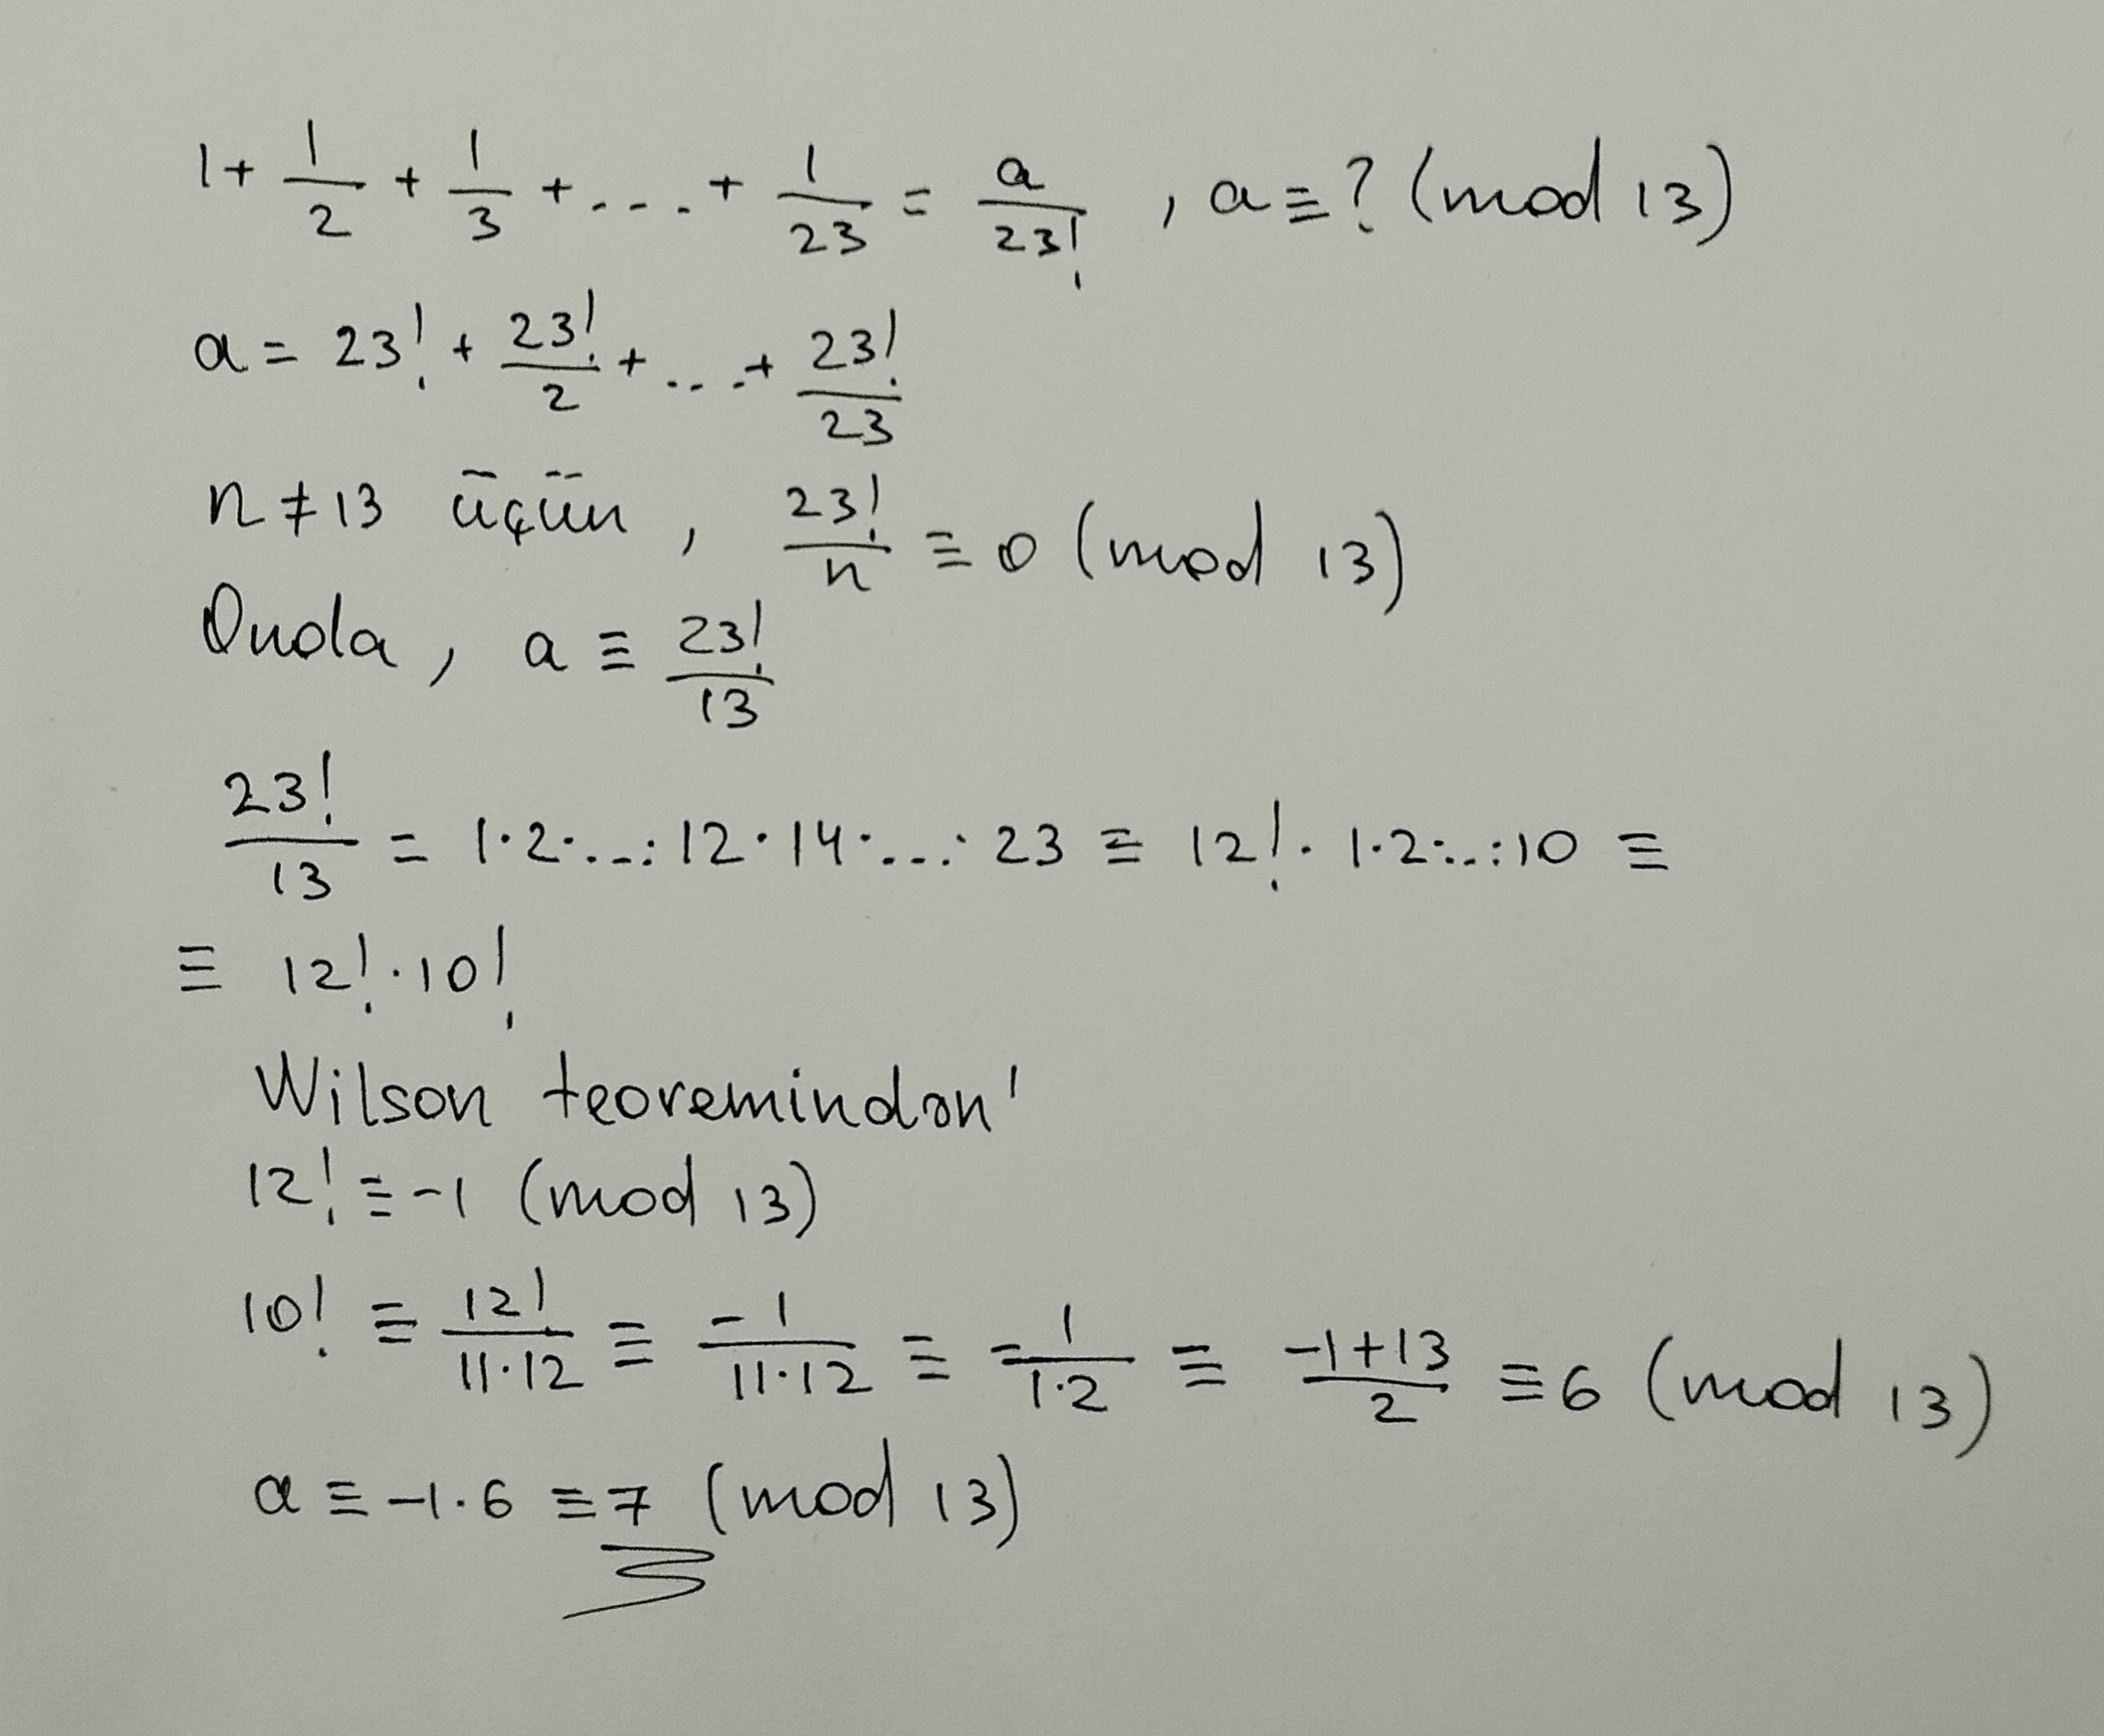 1 + 1/2 + 1/3 + ... + 1/23 = a/23! , a ≡ ? (mod 13)
a = 23! + 23!/2 + ... + 23!/23
n ≠ 13 üçün , 23!/n ≡ 0 (mod 13)
Onda , a ≡ 23!/13
23!/13 = 1·2·...·12·14·...·23 ≡ 12!·1·2·...·10 ≡
≡ 12!·10!
Wilson teoremindən:
12! ≡ -1 (mod 13)
10! ≡ 12!/11·12 ≡ -1/11·12 ≡ -1/1·2 ≡ -1+13/2 ≡ 6 (mod 13)
a ≡ -1·6 ≡ 7 (mod 13)